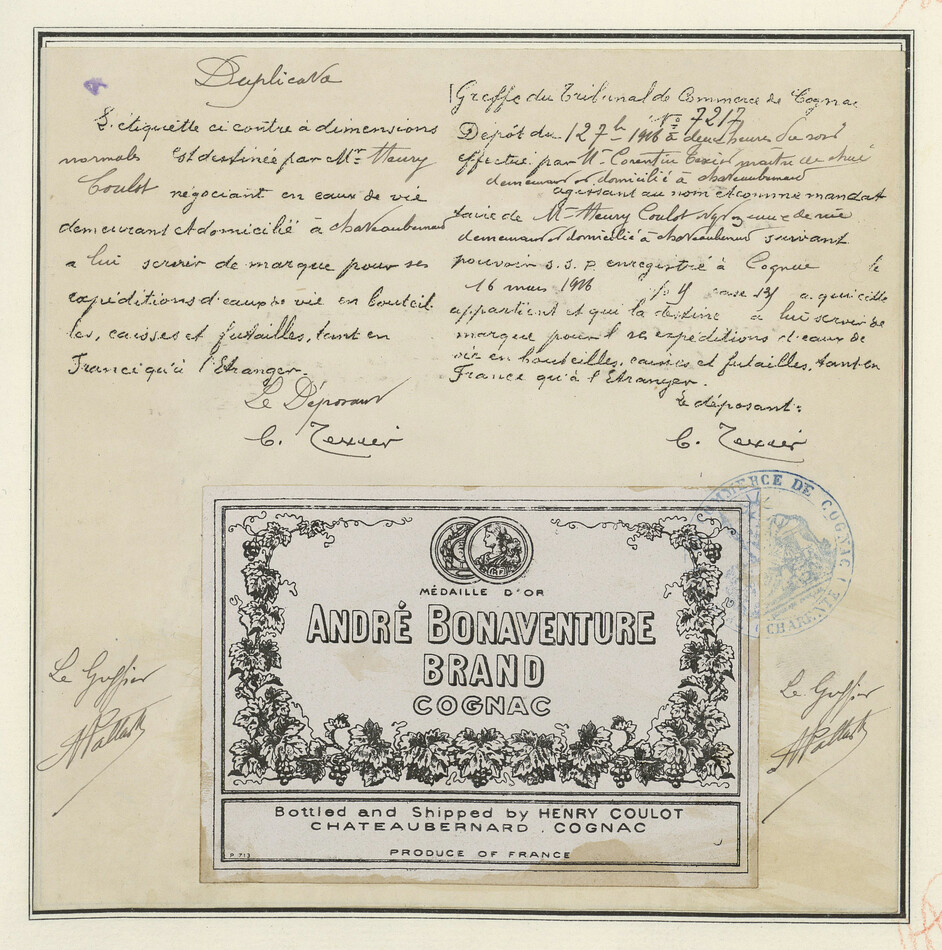 Duplicata
L'étiquette ci contre à dimensions
normales est destinée par Mr Henry
Coulot négociant en eaux de vie
demeurant et domicilié à chateaubernard
a lui servir de marque pour ses
expéditions d'eaux de vie en bouteil
les, caisses et futailles, tant en
France qu'à l'Etranger.
Le Déposant
C. Texier
Greffe du Tribunal de Commerce de Cognac
No 7217
Dépôt du 1916 à deux heures du soir
effectué par Mr Corentin Texier maître de chai
demeurant et domicilié à chateaubernard
agissant au nom et comme mandat
taire de Mr Henry Coulot eaux de vie
demeurant et domicilié à chateaubernard suivant
pouvoir s.s.p. enregistré à Cognac le
16 mars 1916 case a qui cette
appartient et qui la destine a lui servir de
marque pour ses expéditions d'eaux de
vie en bouteilles, caisses et futailles, tant en
France qu'à l'Etranger.
Le déposant:
C. Texier
COMMERCE DE COGNAC
CHARENTE
MÉDAILLE D'OR
ANDRÉ BONAVENTURE
BRAND
COGNAC
Le Greffier
Le Greffier
Bottled and Shipped by HENRY COULOT
CHATEAUBERNARD . COGNAC
PRODUCE OF FRANCE
P 713